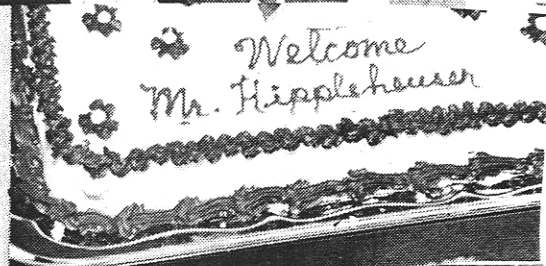 Welcome
Mr. Hippleheuser